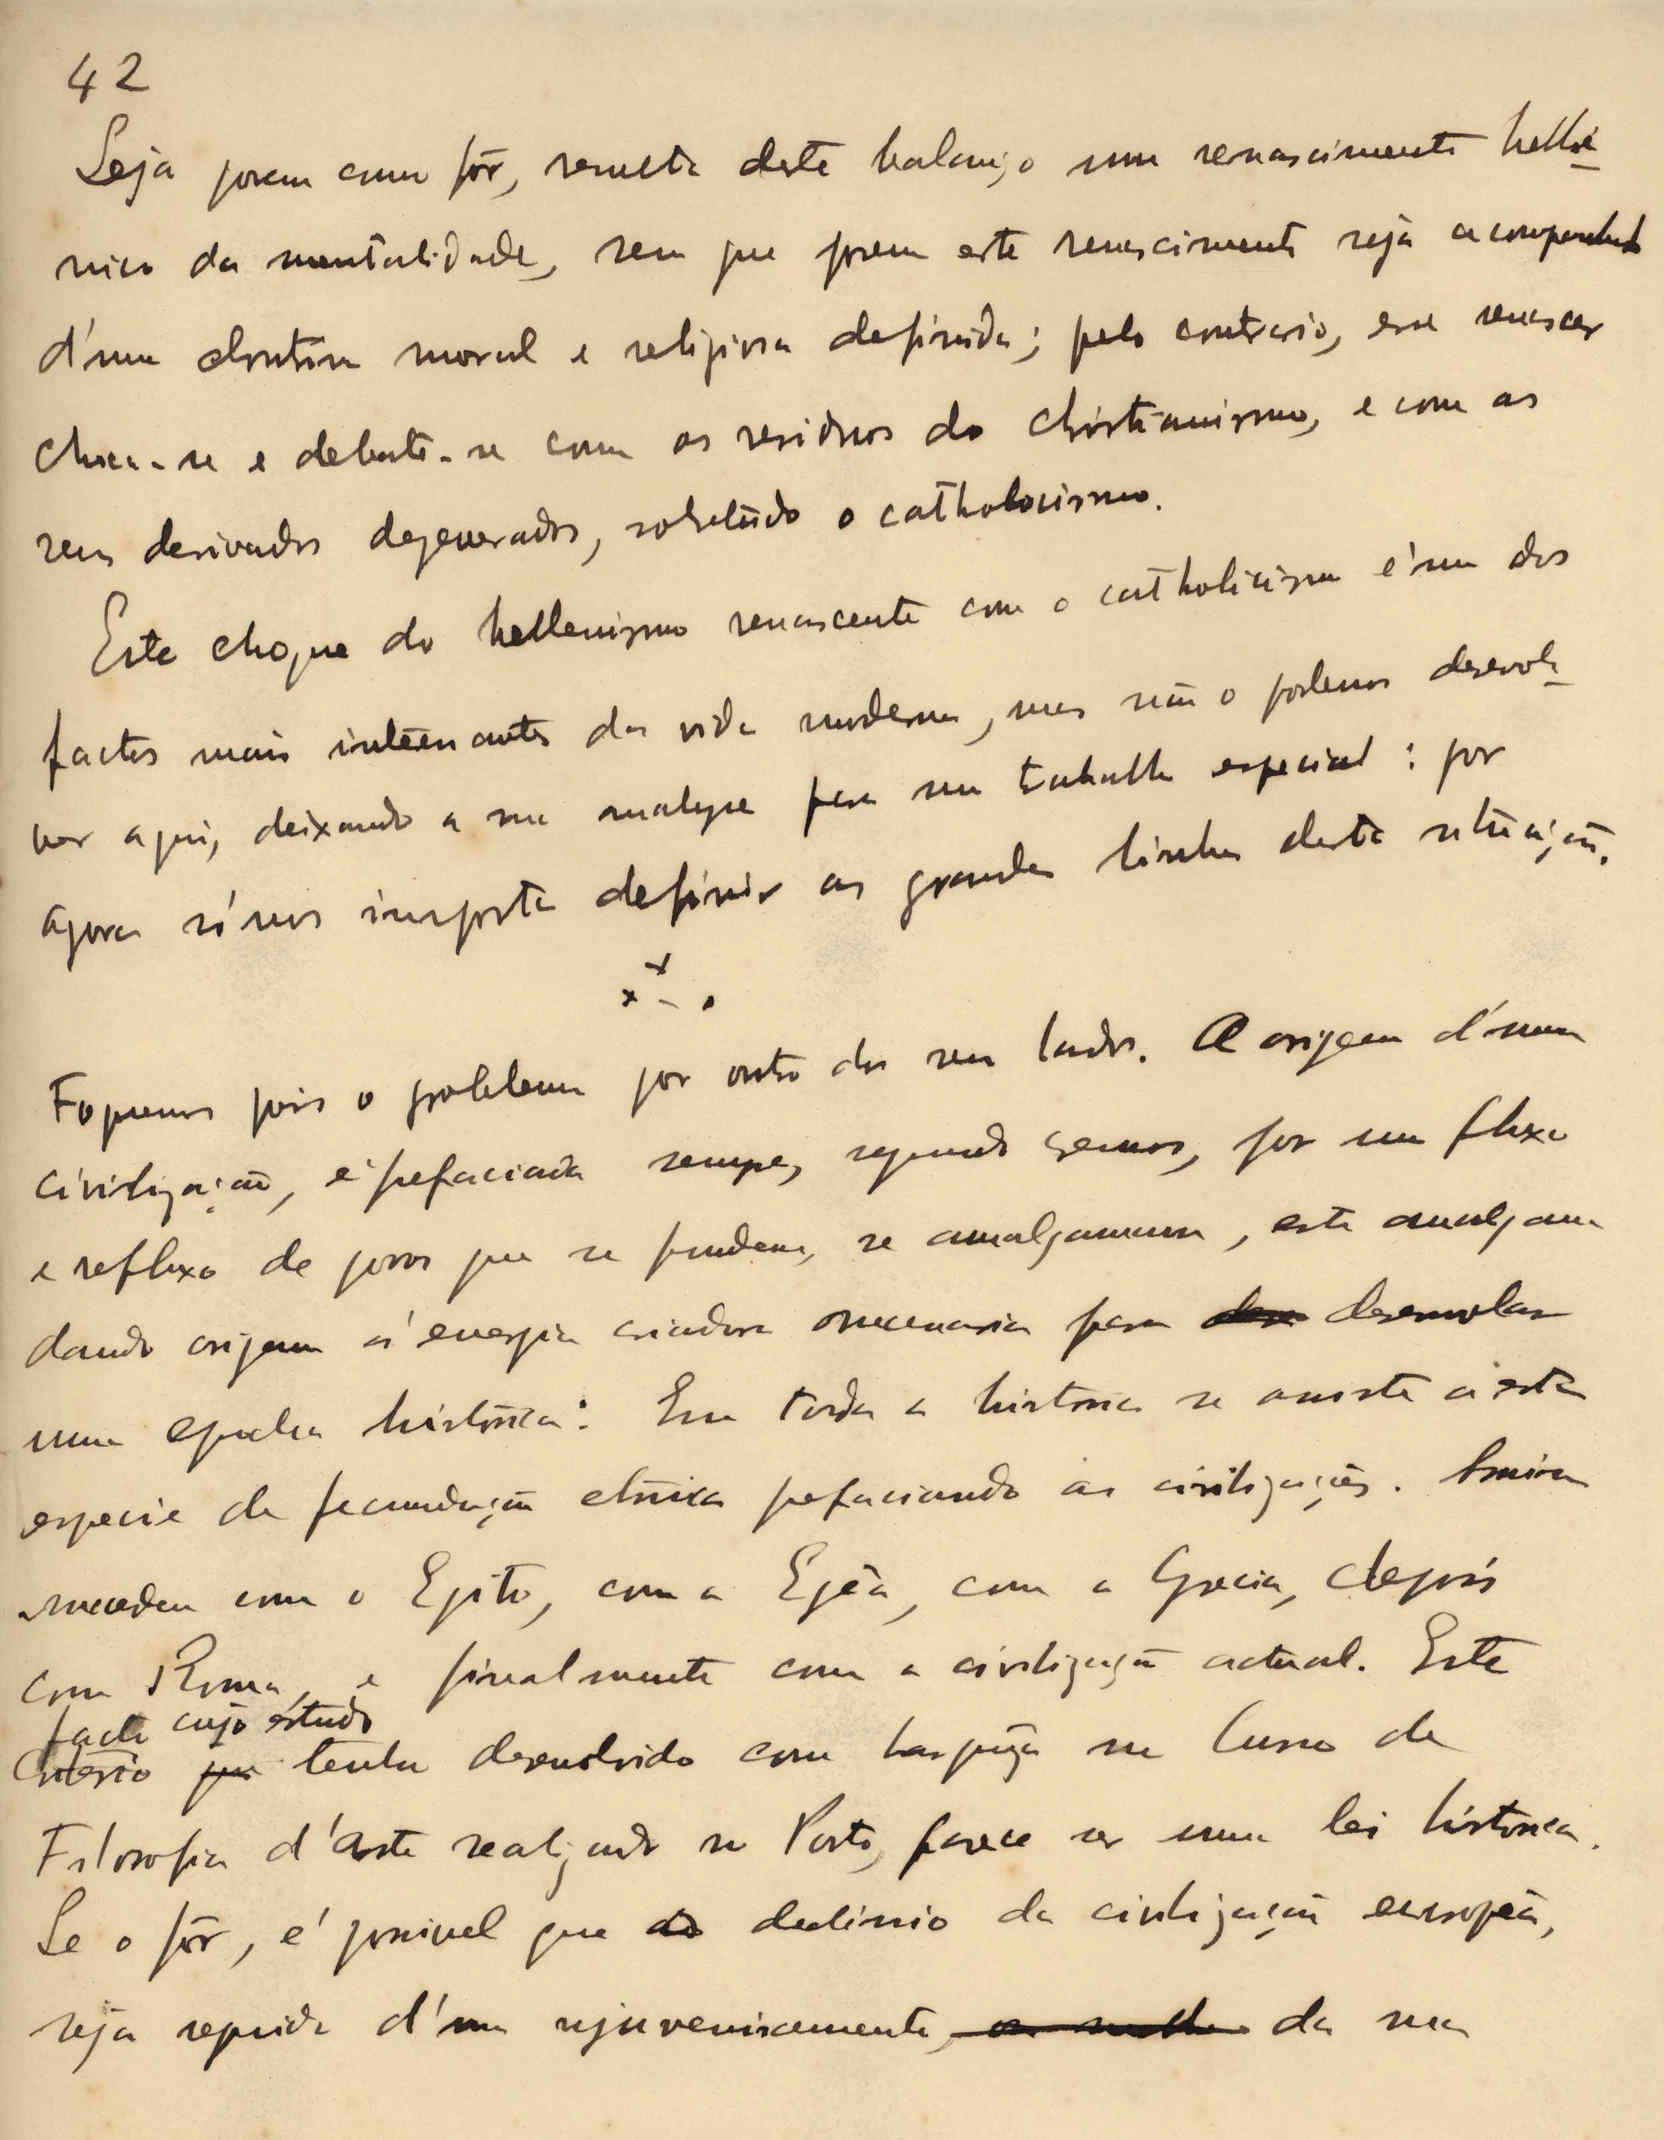 42
Seja porem como fôr, resulta deste balanço um renascimento hellé-
nico da mentalidade, sem que porem este renascimento seja acompanhado
d'uma doutrina moral e religiosa definida; pelo contrario, esse renascer
choca-se e debate-se com os residuos do christianismo, e com os
seus derivados degenerados, sobretudo o catholocismo.
Este choque do hellenismo renascente com o catholicismo é um dos
factos mais interessantes da vida moderna, mas não o podemos desevol-
ver aqui, deixando a sua analyse para um trabalho especial: por
agora só nos importa definir as grandes linhas desta situação.
Foquemos pois o problema por outro dos seus lados. A origem d'uma
civilização, é prefaciada sempre, segundo cremos, por um fluxo
e refluxo de povos que se fundem, se amalgamam, esta amalgama
dando origem á energia criadora necessaria para des desenrolar
uma epocha histórica: Em toda a historia se assiste a esta
especie de fecundação etnica prefaciando as civilizações. Assim
sucedeu com o Egito, com a Egêa, com a Grecia, depois
com Roma, e finalmente com a civilização actual. Este
facto cujo estudo
Criterio que tenho desenvolvido com largueza no Curso de
Filosofia d'Arte realizado no Porto, parece ser uma lei historica.
Se o fôr, é possivel que ao declinio da civilização europêa,
seja seguida d'um rejuvenescimento, da sua